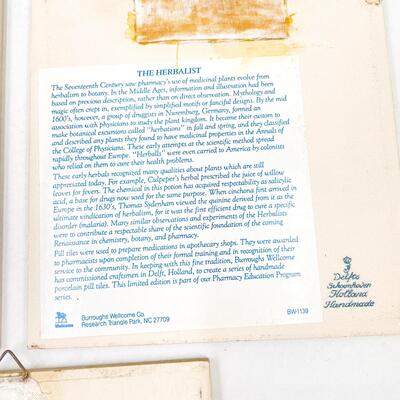 THE HERBALIST
The Seventeenth Century saw pharmacy's use of medicinal plants evolve from
herbalism to botany. In the Middle Ages, information and illustration had been
based on previous description, rather than on direct observation. Mythology and
magic often crept in, exemplified by simplified motifs or fanciful designs. By the mid
1600's, however, a group of druggists in Nuremburg, Germany, formed an
association with physicians to study the plant kingdom. It became their custom to
make botanical excursions called "herbations" in fall and spring, and they classified
and described any plants they found to have medicinal properties in the Annals of
the College of Physicians. These early attempts at the scientific method spread
rapidly throughout Europe. "Herballs" were even carried to America by colonists
who relied on them to cure their health problems.
These early herbals recognized many qualities about plants which are still
appreciated today. For example, Culpeper's herbal prescribed the juice of willow
leaves for fevers. The chemical in this potion has acquired respectability as salicylic
acid, a base for drugs now used for the same purpose. When cinchona first arrived in
Europe in the 1630's, Thomas Sydenham viewed the quinine derived from it as the
ultimate vindication of herbalism, for it was the first efficient drug to cure a specific
disorder (malaria). Many similar observations and experiments of the Herbalists
were to contribute a respectable share of the scientific foundation of the coming
Renaissance in chemistry, botany, and pharmacy.
Pill tiles were used to prepare medications in apothecary shops. They were awarded
to pharmacists upon completion of their formal training and in recognition of their
service to the community. In keeping with this fine tradition, Burroughs Wellcome
has commissioned craftsmen in Delft, Holland, to create a series of handmade
porcelain pill tiles. This limited edition is part of our Pharmacy Education Program
series.
Wellcome
Burroughs Wellcome Co.
Research Triangle Park, NC 27709
BW-1139
Delfts
Schoonhoven
Holland
Handmade